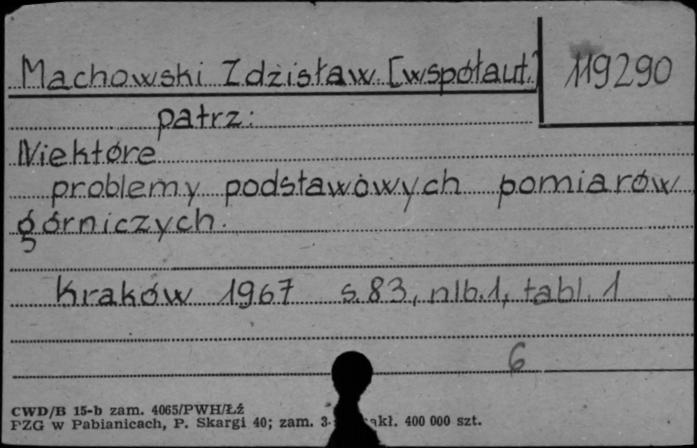 Machowski Zdzisław [współaut.] 119290
patrz:
Niektóre
problemy podstawowych pomiarów
górniczych.
Kraków 1967 s.83, nlb.1, tabl. 1
6
CWD/B 15-b zam. 4065/PWH/Łź
PZG w Pabianicach, P. Skargi 40; zam. 3 nakł. 400 000 szt.